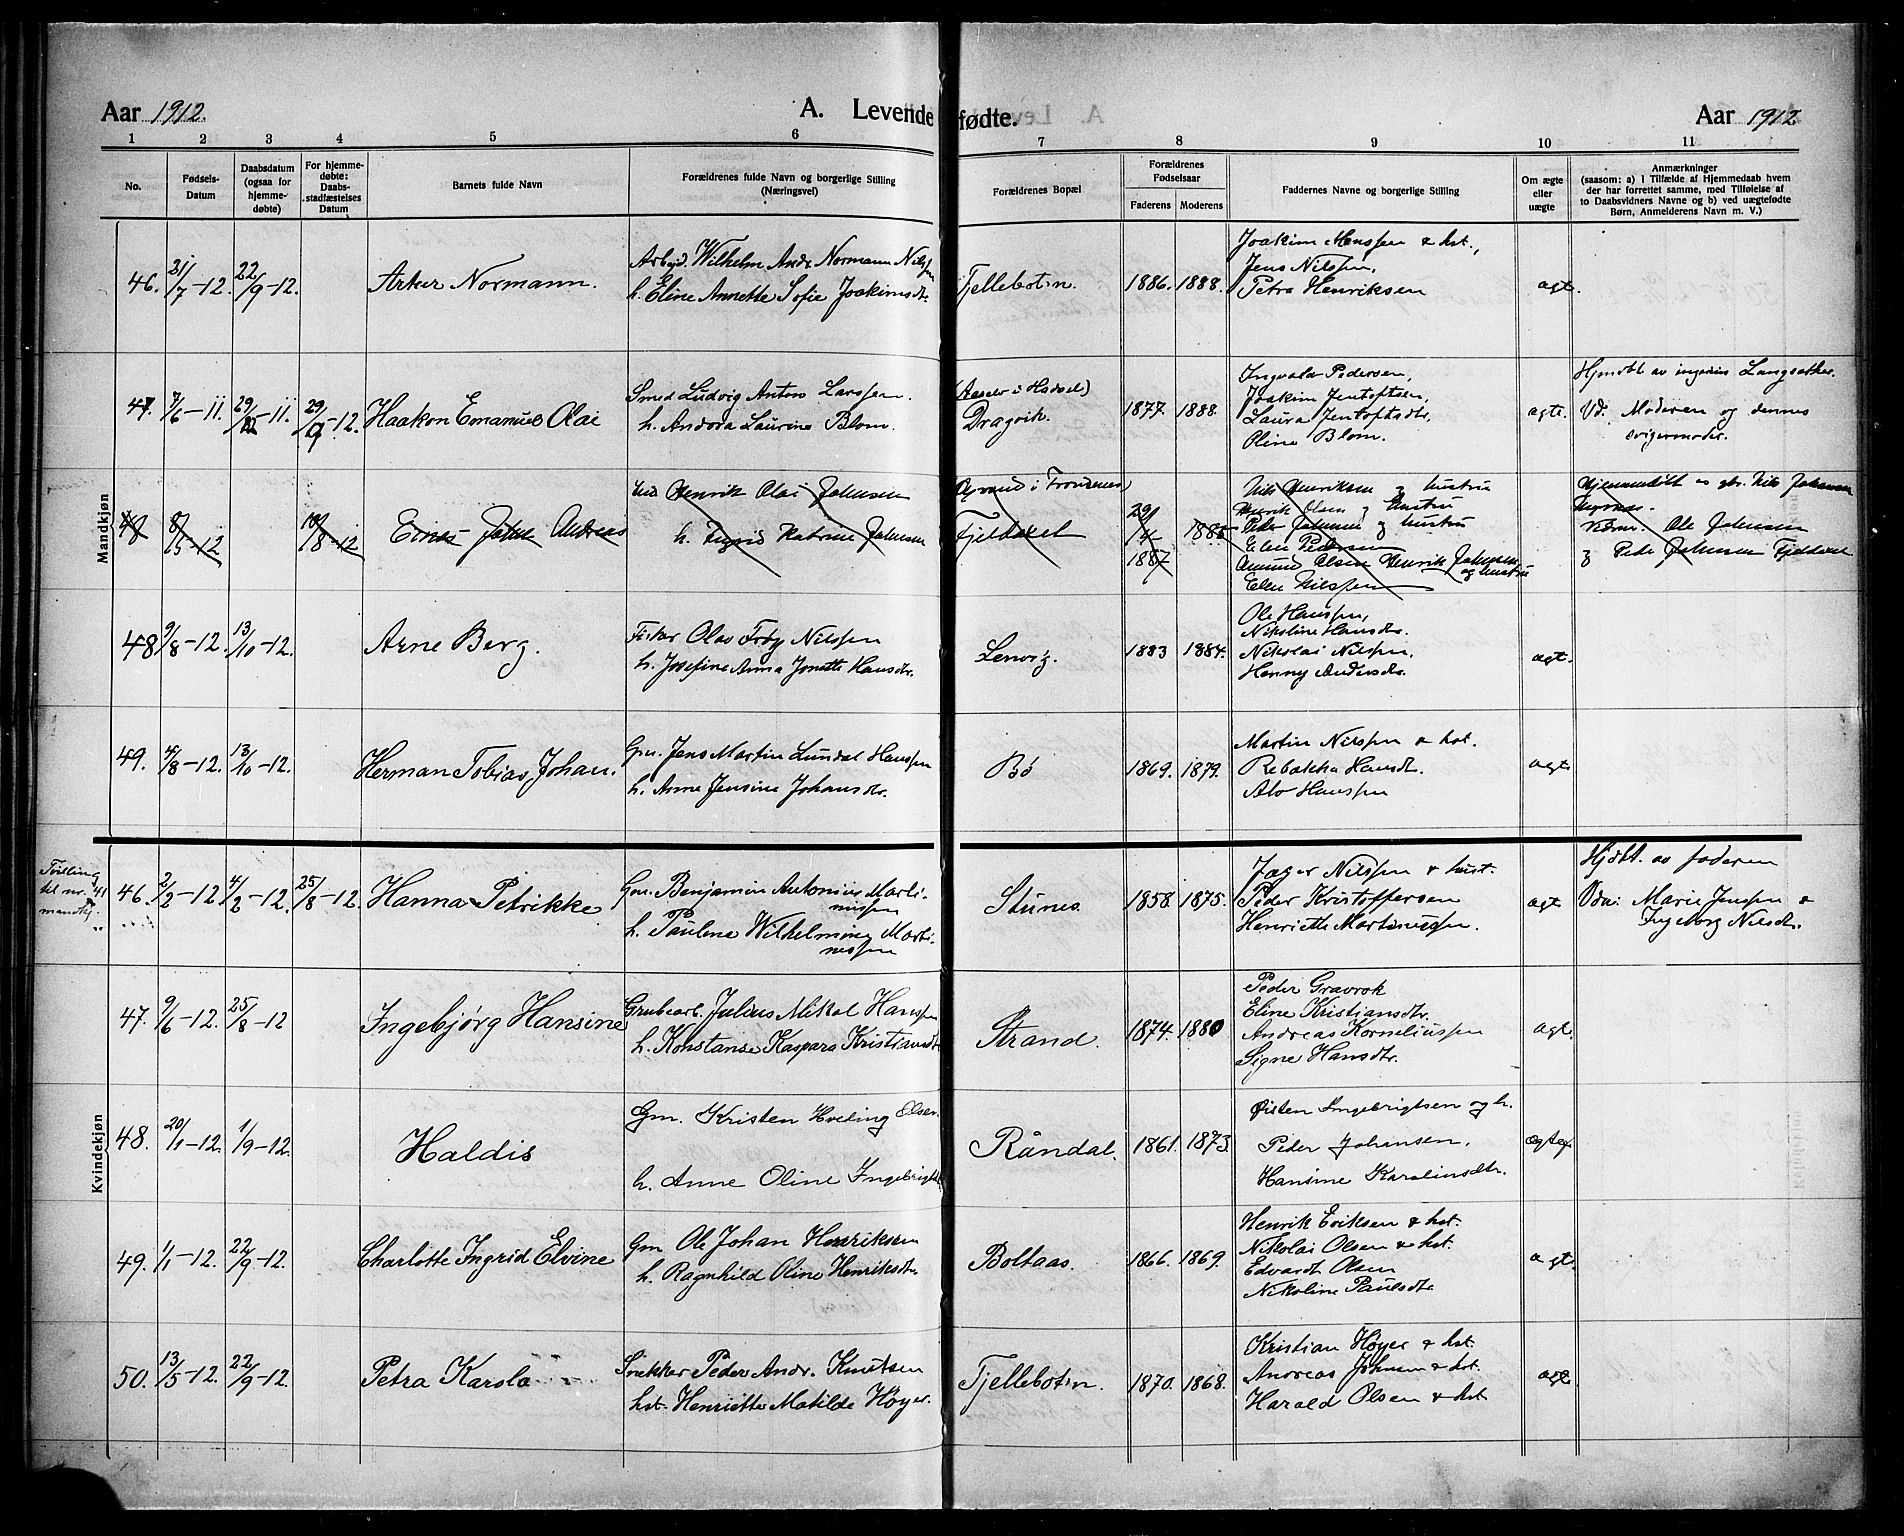 Aar 1912. A. Levende fødte. Aar 1912
1 2 3 4 5 6 7 8 9 10 11
No.
Fødsels-Datum
Daabsdatum (ogsaa for hjemmedøbte)
For hjemmedøbte: Daabsstadfæstelses Datum
Barnets fulde Navn
Forældrenes fulde Navn og borgerlige Stilling (Næringsvei)
Forældrenes Bopæl
Forældrenes Fødselsaar
Faderens Moderens
Faddernes Navne og borgerlige Stilling
Om ægte eller uægte
Anmærkninger
(saasom: a) i Tilfælde af Hjemmedaab hvem
der har forrettet samme, med Tilføielse af
to Daabsvidners Navne og b) ved uægtefødte
Børn, Anmelderens Navn m. V.)
Mandkjøn
46. 21/7-12. 22/9-12. Arbeid. Wilhelm Andr. Normann Nilssen
Arker Normann.
h. Eline Annette Sofie Joakimsdtr.
Fjellebotn. 1886. 1888.
Joakim Monssen & hst.,
Jens Nilssen,
Petra Henriksen
ægt.
47. 7/6-11. 29/-11. 29/9-12. Haakon Emanuel Olai
Smed Ludvig Anton Larssen.
h. Andora Laurine Blom.
(Aasen i Hadsel)
Dragvik. 1877. 1888.
Ingvald Pedersen,
Joakim Jentoftsen,
Laura Jentoftsdtr.
Oline Blom.
ægte.
Hjmdbt av ingeniør Langsæther.
Vd. Moderen og dennes
svigermoder.
48 8/5-12 18/8-12 Einar Johan Andreas
Henrik Olai Johansen
h. Ingrid Katrine Johansen
i Trondenes)
Fjeldaset
29/4 1887 1885
Nils Henriksen og hustru
Henrik Olsen og hustru
Peder Johansen og hustru
Elen Pedersen
Olsen Henrik Johansen og hustru
Elen Nilssen
Hjemmedøbt av Nils Johansen
Ole Johansen
og Peder Johansen Fjeldaset
48 9/8-12. 13/10-12. Arne Berg.
Fisker Olav Frøy Nilssen
h. Josefine Anna Jonette Hansdtr.
Lenvig. 1883 1884.
Ole Hanssen,
Nikoline Hansdtr.
Nikolai Nilssen,
Henny Andersdtr.
ægt.
49. 4/8-12. 13/10-12. Herman Tobias Johan.
Gm. Jens Martin Lundal Hanssen
h. Anne Jensine Johansdtr.
Bø 1869. 1879.
Martin Nilssen & hst.
Rebekka Hansdtr.
Alv Hanssen
ægt
Kvindekjøn
Tvilling
til nr. 41
mandkj.
46. 2/2-12 4/2-12 25/8-12. Hanna Petrikke
Gm. Benjamin Antonius Martinussen
h. Pauline Wilhelmine Martinussen
Stunes. 1858 1875.
Jæger Nilssen & hust.
Peder Kristoffersen
Henriette Martinussen.
ægt
Hjdbt. av faderen
Vda: Marie Jenssen &
Ingeborg Nilsdtr.
47. 9/6-12. 25/8-12 Ingebjørg Hansine
Grubearb. Julius Mikal Hanssen
h. Konstanse Kaspara Kristiansdtr
Strand. 1874. 1880
Peder Gravrok
Eline Kristiansdtr.
Andreas Korneliussen
Signe Hansdtr.
ægt.
48. 20/1-12. 1/9-12. Haldis
Gm. Kristen Hveding Olsen
h. Anne Oline Ingebrigtsd.
Råndal. 1861. 1873.
Øisten Ingebrigtsen og h.
Peder Johansen.
Hansine Karolinsdtr.
ægte
49. 1/1-12. 22/9-12. Charlotte Ingrid Elvine
Gm Ole Johan Henriksen
h. Ragnhild Oline Henriksdtr
Boltaas. 1866. 1869.
Henrik Eriksen & hst.
Nikolai Olsen & hst.
Edvardt Olsen
Nikoline Paulsdtr
ægt.
50. 13/5-12. 22/9-12. Petra Karola
Snekker Peder Andr. Knutsen
hst. Henriette Matilde Høyer.
Fjellebotn. 1870. 1868.
Kristian Høyer & hst.
Andreas Johnsen & hst.
Harald Olsen & hst
ægt